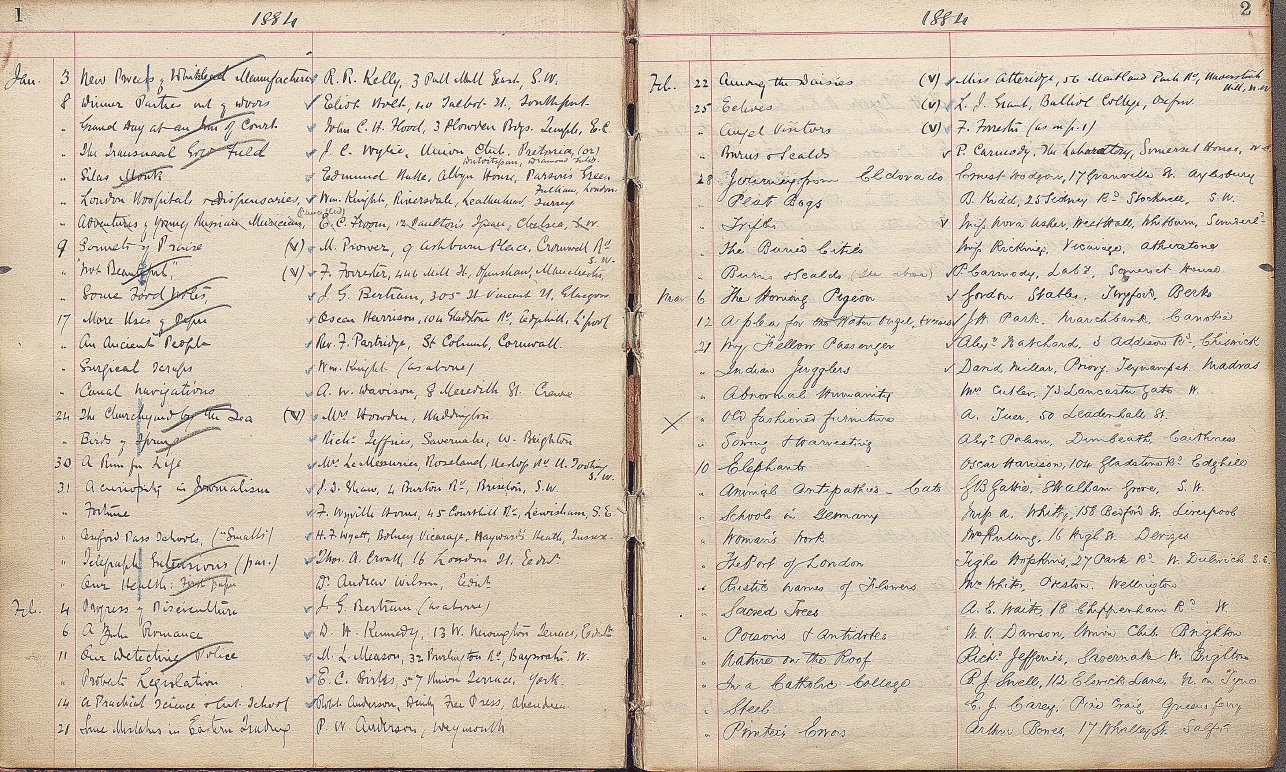 1
1884
Jan. 3 New Process of Whitelead Manufacture R. R. Kelly, 3 Pall Mall East, S.W.
8 Winner Parties out of doors Eliot Holt, 40 Talbot St, Southport
" Grand Day at an Inn of Court John C. H. Flood, 3 Plowden Bdgs. Temple, E.C.
" The Transvaal Gold Field J. C. Wylie, Union Club. Pretoria (or)
Dutoitspan, Diamond Fields
" Silas Monk Edmund Wake, Albyn House, Parsons Green
Fulham, London
" London Hospitals & Dispensaries, Wm. Knight, Riversdale, Leatherhead, Surrey
(Cancelled)
" Adventures of young Russian Musician, E. C. Froom, 12 Paulton's Square, Chelsea, S.W
9 Sonnets of Praise (V) M. Prower, 9 Ashburn Place, Cromwell Rd
S.W.
" "Not Beautiful", (V) F. Forrester, 446 Mill St, Openshaw, Manchester
" Some Food Notes, J. G. Bertram, 305 St Vincent St, Glasgow
17 More Uses of Paper Oscar Harrison, 104 Gladstone Rd, Edgehill, L'pool
" An Ancient People Rev. F. Partridge, St Column, Cornwall.
" Surgical Scraps Wm. Knight. (as above)
" Canal Navigations A. W. Davison, 8 Meredith St. Crewe
24 The Churchyard by the Sea (V) Mrs Howden, Haddington
" Birds of Spring Richd Jeffries, Savernake, W. Brighton
30 A Run for Life Mrs Le Messurier, Roseland, Heslop Rd U. Tooting
S.W.
31 A curiosity in Journalism J. D. Shaw, 4 Burton Rd, Brixton, S.W.
" Fortune F. Wyville Home, 45 Courthill Rd, Lewisham, S.E.
" Oxford Pass Schools, ("Smalls") H. F. Wyatt, Bolney Vicarage, Haywards Heath, Sussex.
" Telegraph Extensions (par.) Thos. A. Croall, 16 London St. Edinr.
" Our Health: Dr. Andrew Wilson, Edinr
Feb. 4 Progress of Pisciculture J. G. Bertram (as above)
6 A Zulu Romance D. H. Kennedy, 13 W. Newington Terrace, Edinr
11 Our Detective Police M. L. Meason, 32 Burlington Rd, Bayswater. W.
" Probate Legislation E. C. Birks, 57 Union Terrace, York.
14 A Practical Science & Art School Robt Anderson, Daily Free Press, Aberdeen
21 Some Mistakes in Eastern Trading P. W. Anderson, Weymouth
2
1884
Feb. 22 Among the Daisies (V) Miss Atteridge, 56 Maitland Park Rd, Haverstock
Hill, N.W
25 Echoes (V) L. J. Grant, Balliol College, Oxford
" Angel Visitors (V) F. Forrester (as on p. 1)
" Burns & Scalds P. Carmody, The Laboratory, Somerset House,
28 Journey from Eldorado Ernest Hodgson, 17 Granville St. Aylesbury
" Peat Bogs B. Kidd, 25 Sidney Rd Stockwell, S.W.
" Trifles V Miss Nora Usher, West Hall, Whitburn,
" The Buried Cities Miss Vicarage, Atherstone
" Burns & Scalds (see above) P. Carmody, Laby, Somerset House
Mar 6 The Homing Pigeon Gordon Stables, Twyford, Berks
12 A plea for the Water Ouzel, J. H. Park. Marchbank, Canobie
21 My Fellow Passenger Alexr Batchard, 3 Addison Rd, Chiswick
" Indian Jugglers David Millar, Priory, Teynampet. Madras
" Abnormal Humanity Mrs Cutler, 73 Lancaster Gate W.
X " Old fashioned furniture A. Tuer, 50 Leadenhall St.
" Sowing & Harvesting Alexr Polson, Dunbeath, Caithness
10 Elephants Oscar Harrison, 104 Gladstone Rd Edgehill
" Animal Antipathies - Cats G B Gattie, Walham Grove, S.W.
" Schools in Germany Miss A. Whitty, 158 Bedford St. Liverpool
" Woman's Work 16 High St. Devizes
" The Port of London Tighe Hopkins, 27 Park Rd. W. Dulwich S.E.
" Rustic Names of Flowers Mrs White, Weston, Wellington
" Sacred Trees A. E. Waite, 18 Chippenham Rd W.
" Poisons & Antidotes Dawson, Union Club Brighton
" Nature on the Roof Richd Jefferies, Savernake W. Brighton
" In a Catholic College R J Snell, 112 Elswick Lane, N. on Tyne
" Steel E. J. Carey, Pine Craig, Queensferry
" Printer's Errors Arthur Bones, 17 Whalley St.